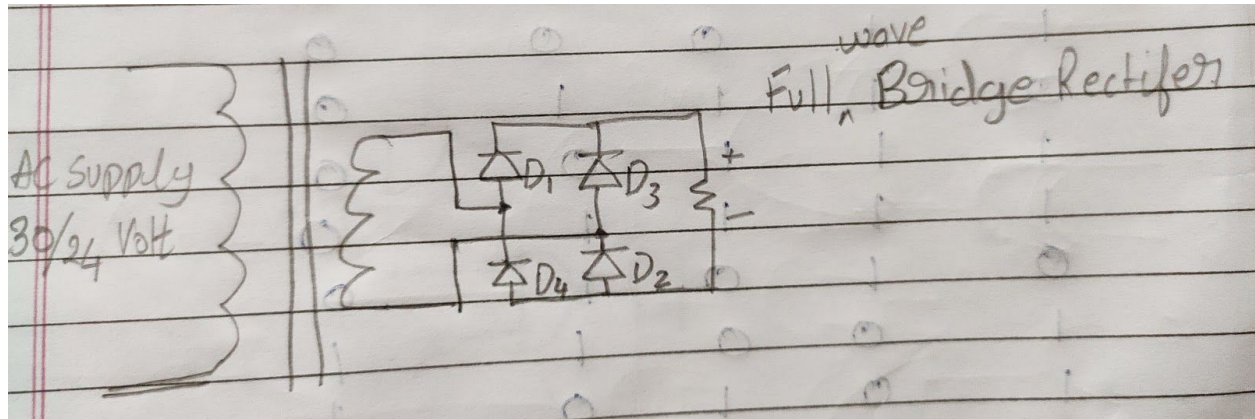 wave
Full ^ Bridge Rectifer
AC Supply
30/24 Volt
D1
D3
+
-
D4
D2